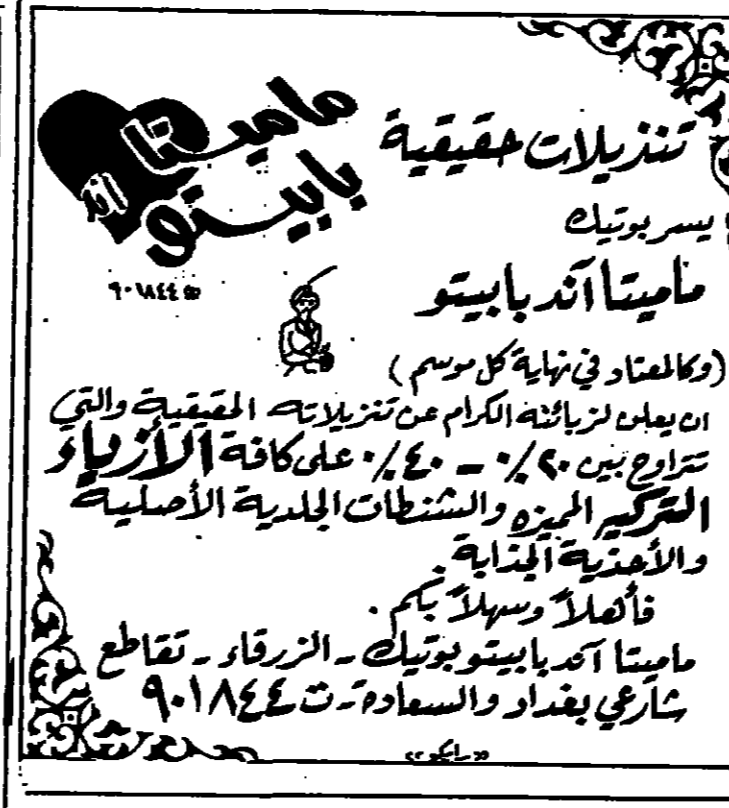 ماميتا
اند
بابيتو
☎ ٩٠١٨٤٤
تنزيلات حقيقية
يسر بوتيك
ماميتا آند بابيتو
(وكالمعتاد في نهاية كل موسم)
ان يعلن لزبائنه الكرام عن تنزيلاته الحقيقية والتي
تتراوح بين ٢٠٪ - ٤٠٪ على كافة الأزياء
التركيه المميزه والشنطات الجلدية الأصلية
والأحذية الجذابة.
فأهلاً وسهلاً بكم.
ماميتا آند بابيتو بوتيك - الزرقاء - تقاطع
شارعي بغداد والسعادة - ت ٩٠١٨٤٤